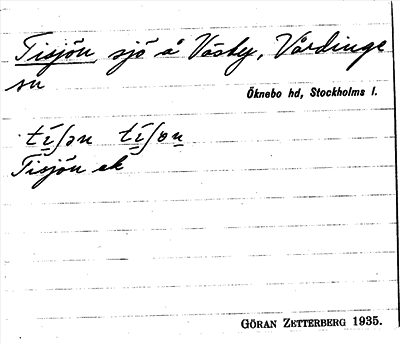 Tisjön sjö å Väsby, Vårdinge
sn
Öknebo hd, Stockholms l.
tí̱ʃən tí̱ʃɵn
Tisjön ek
GÖRAN ZETTERBERG 1935.